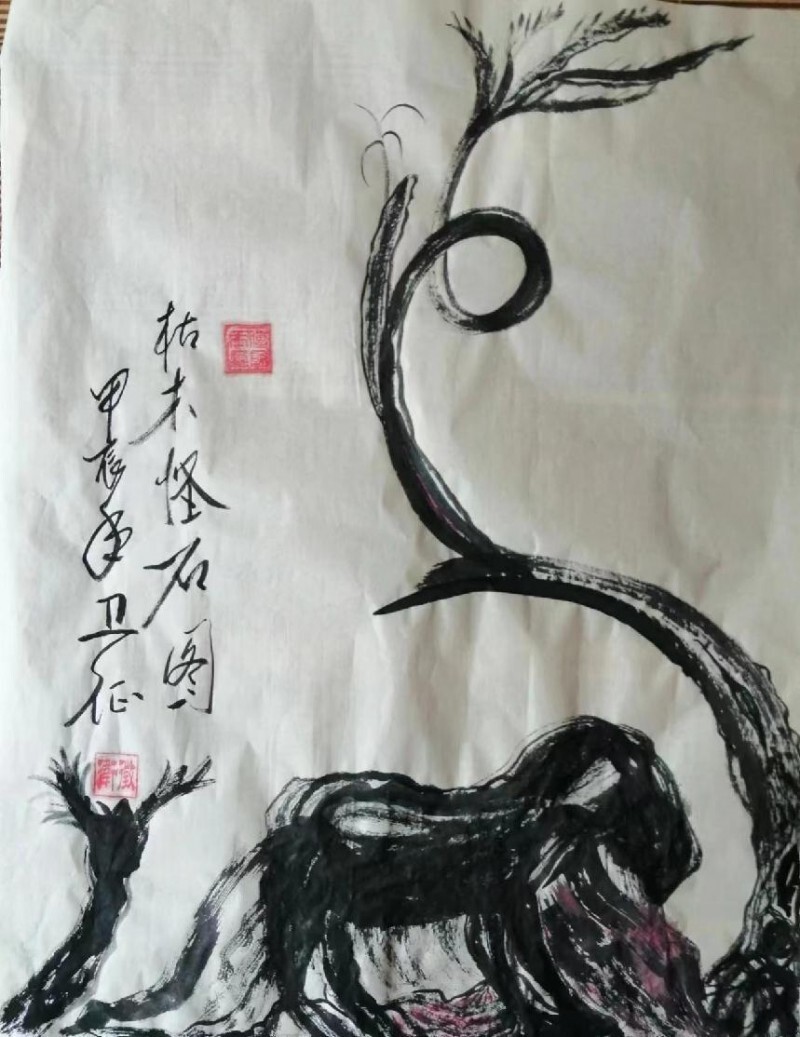 枯木怪石图
甲辰年卫征